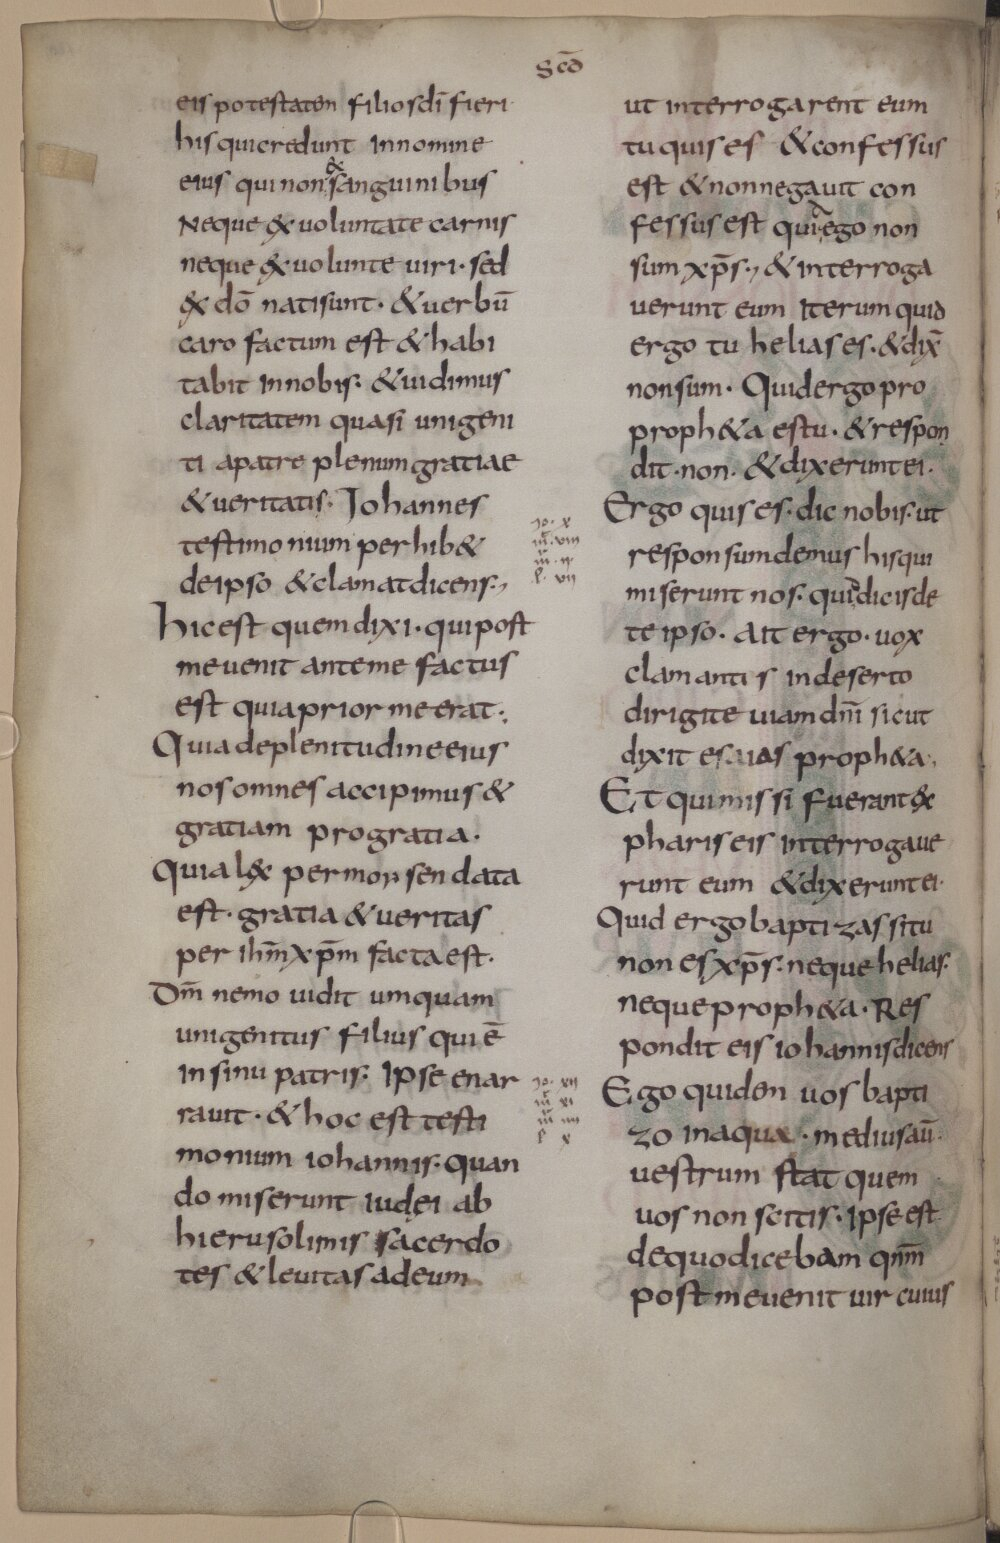 scd̄
eis potestatem filios dī fieri
his qui credunt in nomine
eius qui non ex sanguinibus
Neque ex uoluntate carnis
neque ex uolunte uiri · sed
ex dō nati sunt · & uerbū
caro factum est & habi
tabit in nobis · & uidimus
claritatem quasi unigeni
ti a patre plenum gratiae
& ueritatis · Iohannes
testimonium perhib&
de ipso & clamat dicens ·,
hic est quem dixi · qui post
me uenit ante me factus
est quia prior me erat ·,
Quia de plenitudine eius
nos omnes accipimus &
gratiam pro gratia ·
Quia lex per moysen data
est · gratia & ueritas
per ihm̄ xp̄m facta est ·
Dm̄ nemo uidit umquam
unigenitus filius qui ē
in sinu patris · Ipse enar
rauit · & hoc est testi
monium iohannis · quan
do miserunt iudei ab
hierusolimis sacerdo
tes & leuitas ad eum
ut interrogarent eum
tu quis es & confessus
est & non negauit con
fessus est quia ego non
sum xp̄s ·, & interroga
uerunt eum Iterum quid
ergo tu helias es · & dix̄
non sum · Quid ergo pro
proph&a es tu · & respon
dit · non · & dixerunt ei ·
io · x
m̄ · viii
m̄ · ii
l · vii
Ergo quis es · dic nobis · ut
responsum demus his qui
miserunt nos · quid dicis de
te ipso · Ait ergo · uox
clamantis in deserto
dirigite uiam dn̄i sicut
dixit esaias proph&a ·,
Et qui missi fuerant ex
phariseis interrogaue
runt eum & dixerunt ei ·
Quid ergo baptizas si tu
non es xp̄s · neque helias ·
neque proph&a · Res
pondit eis iohannis dicens
io · xii
m̄ xi
m̄ iiii
l x
Ego quidem uos bapti
zo in aqua · medius aū ·
uestrum stat quem
uos non scitis · Ipse est
de quo dicebam qnm̄
post me uenit uir cuius